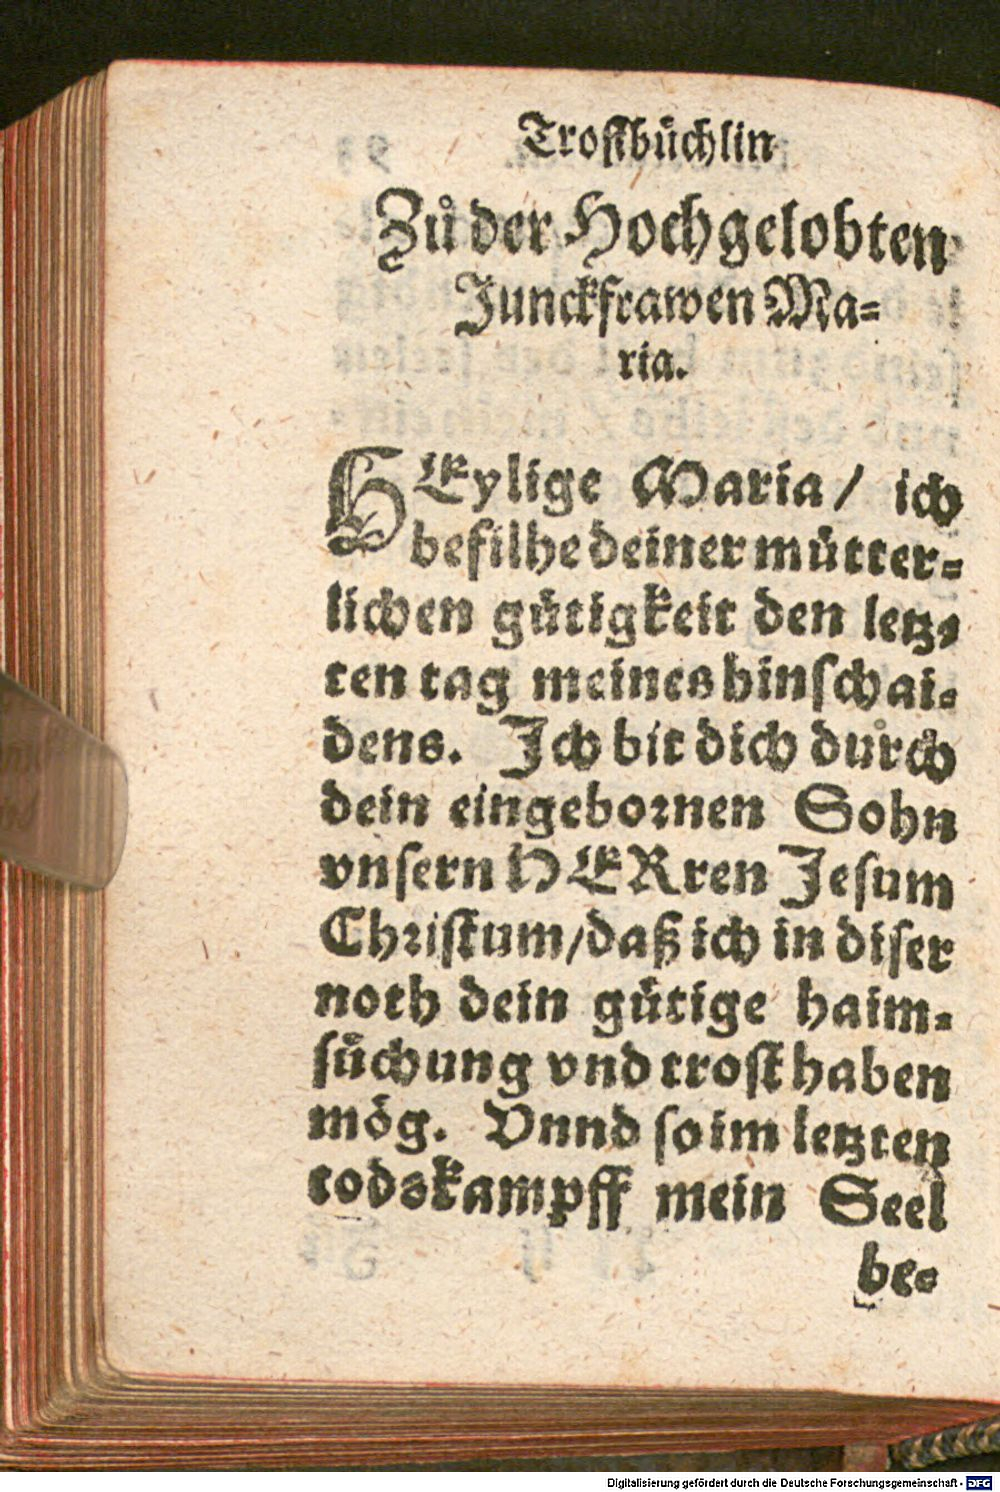 Trostbüchlin
Zů der Hochgelobten
Junckfrawen Ma=
ria.
HEylige Maria / ich
befilhe deiner mütter=
lichen gütigkeit den letz=
ten tag meines hinschai=
dens. Ich bit dich durch
dein eingebornen Sohn
vnsern HERren Jesum
Christum/daß ich in diser
noth dein gütige haim=
sůchung vnd trost haben
mög. Vnnd so im letzten
todskampff mein Seel
be=
Digitalisierung gefördert durch die Deutsche Forschungsgemeinschaft - DFG